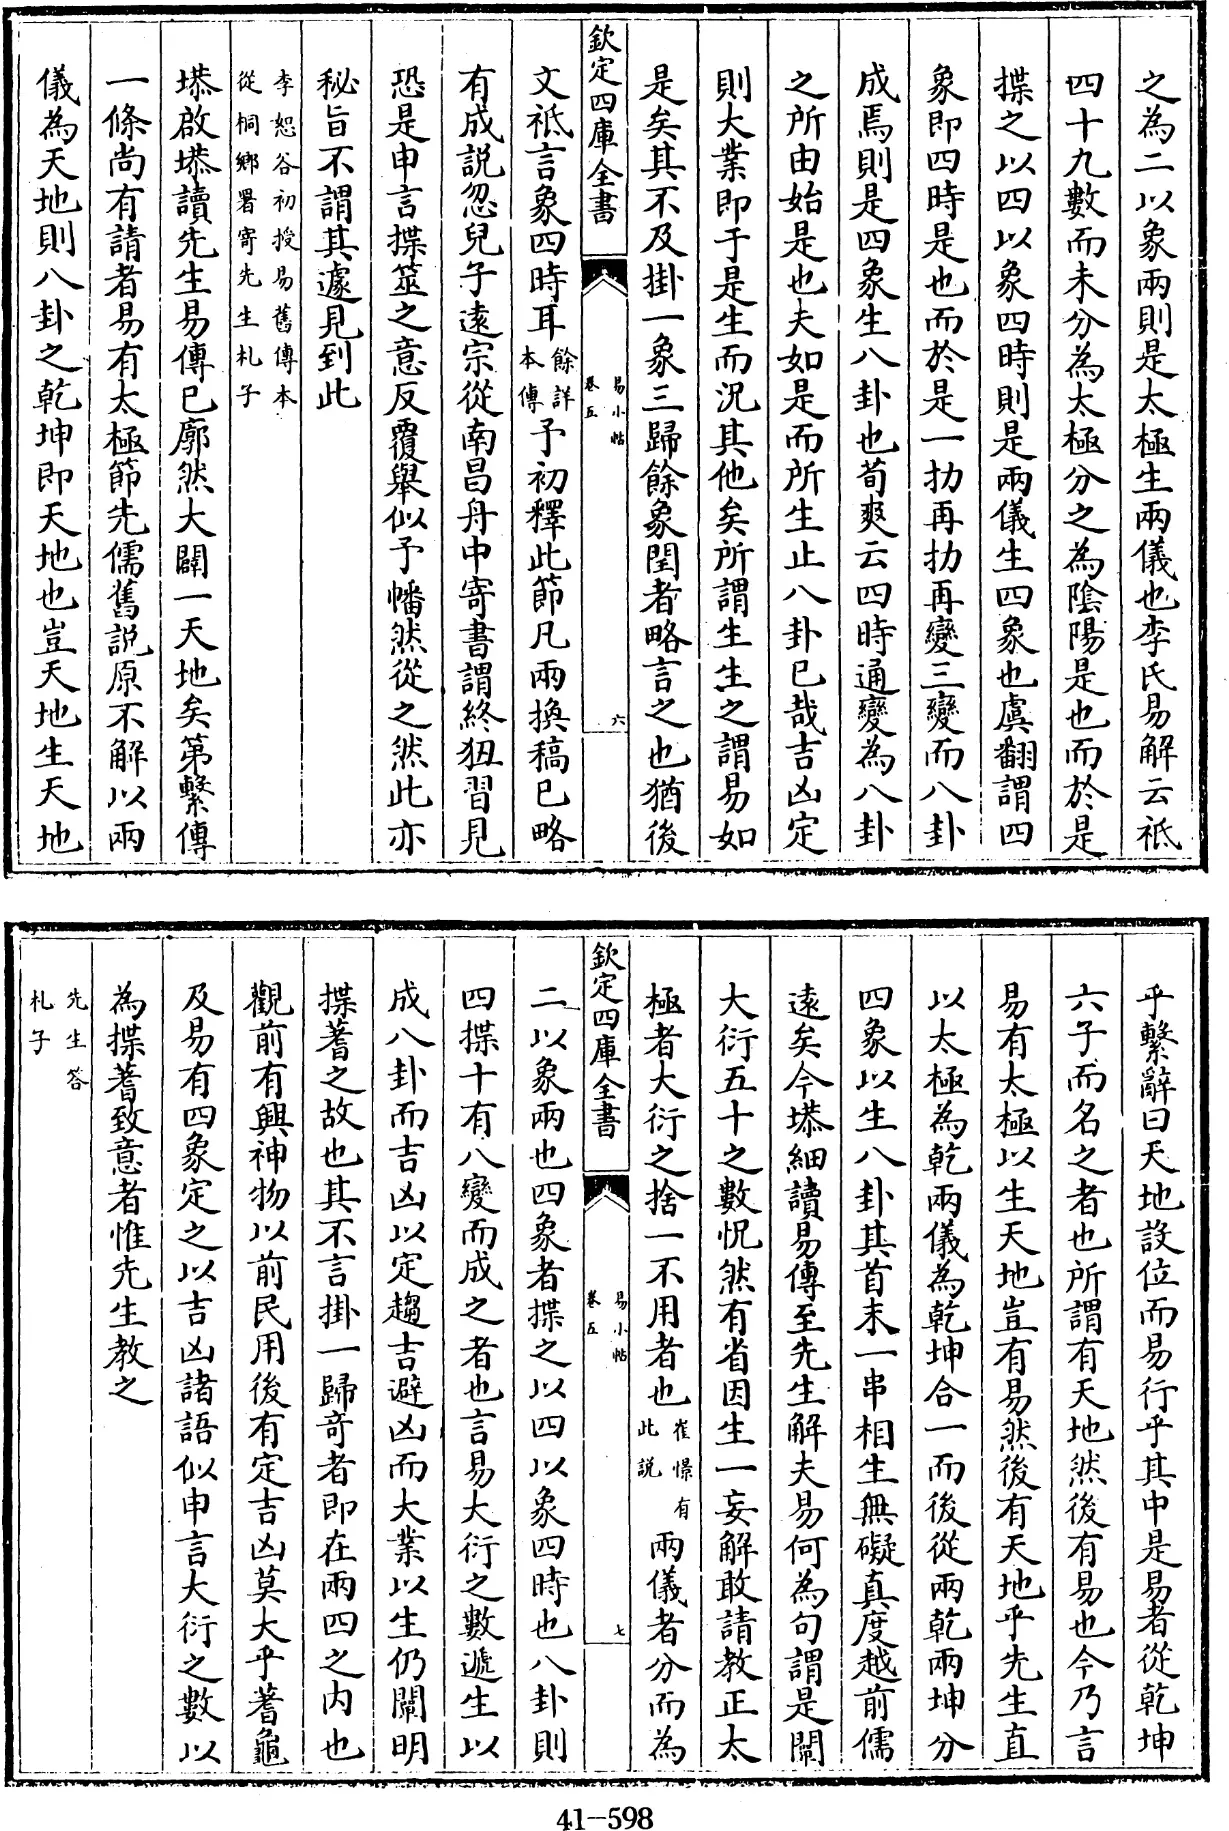 之為二以象兩則是太極生兩儀也李氏易解云祗
四十九數而未分為太極分之為陰陽是也而於是
揲之以四以象四時則是兩儀生四象也虞翻謂四
象即四時是也而於是一扐再扐再變三變而八卦
成焉則是四象生八卦也荀爽云四時通變為八卦
之所由始是也夫如是而所生止八卦已哉吉凶定
則大業即于是生而況其他矣所謂生生之謂易如
是矣其不及掛一象三歸餘象閏者略言之也猶後
欽定四庫全書
易小帖
卷五
六
文祗言象四時耳餘詳本傳予初釋此節凡兩換稿已略
有成説忽兒子遠宗從南昌舟中寄書謂終狃習見
恐是申言揲筮之意反覆舉似予幡然從之然此亦
秘旨不謂其遽見到此
李恕谷初授易舊傳本
從桐鄉署寄先生札子
塨啟塨讀先生易傳已廓然大闢一天地矣第繫傳
一條尚有請者易有太極節先儒舊説原不解以兩
儀為天地則八卦之乾坤即天地也豈天地生天地
乎繫辭曰天地設位而易行乎其中是易者從乾坤
六子而名之者也所謂有天地然後有易也今乃言
易有太極以生天地豈有易然後有天地乎先生直
以太極為乾兩儀為乾坤合一而後從兩乾兩坤分
四象以生八卦其首末一串相生無礙真度越前儒
遠矣今塨細讀易傳至先生解夫易何為句謂是闡
大衍五十之數怳然有省因生一妄解敢請教正太
極者大衍之捨一不用者也崔憬有此説兩儀者分而為
欽定四庫全書
易小帖
卷五
七
二以象兩也四象者揲之以四以象四時也八卦則
四揲十有八變而成之者也言易大衍之數遞生以
成八卦而吉凶以定趨吉避凶而大業以生仍闡明
揲蓍之故也其不言掛一歸竒者即在兩四之内也
觀前有興神物以前民用後有定吉凶莫大乎蓍龜
及易有四象定之以吉凶諸語似申言大衍之數以
為揲蓍致意者惟先生教之
先生答
札子
41-598